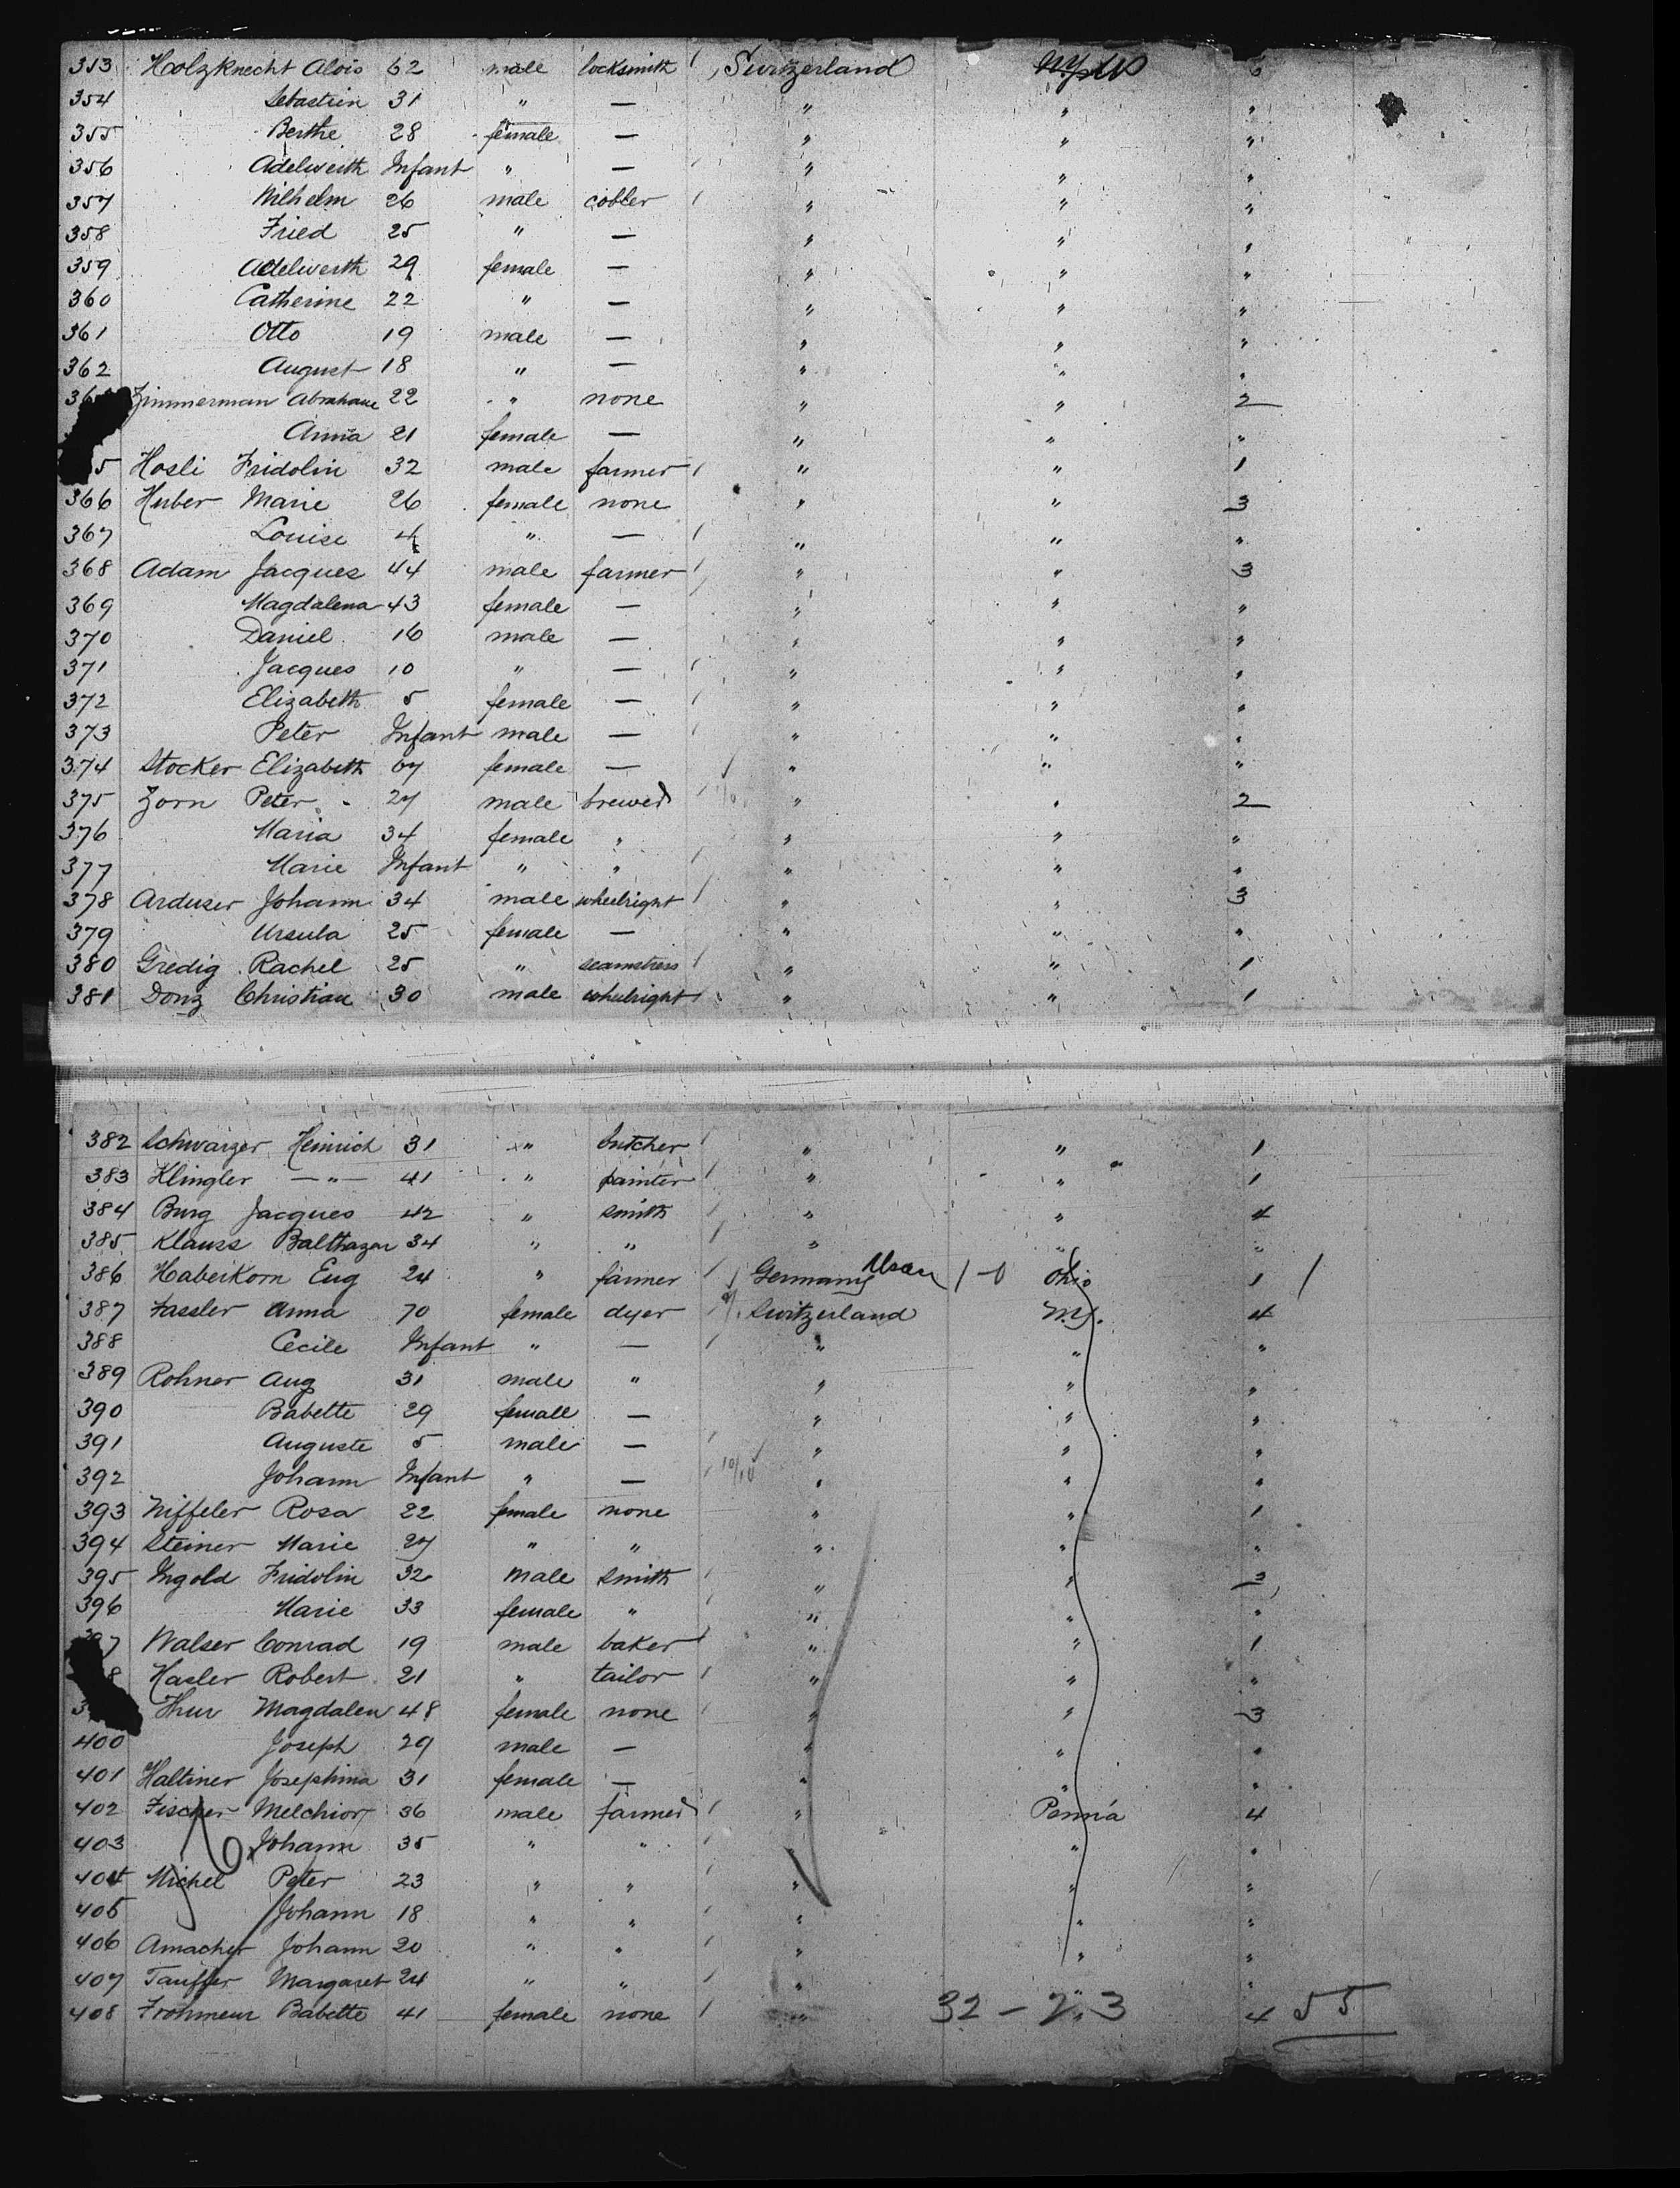 353 Holzknecht Alois 62 male locksmith Switzerland
354 Sebastien 31 " — " " "
355 Berthe 28 female — " " "
356 Adelwerth Infant " — " " "
357 Wilhelm 26 male cobler " " "
358 Fried 25 " — " " "
359 Adelwerth 29 female — " " "
360 Catherine 22 " — " " "
361 Otto 19 male — " " "
362 August 18 " — " " "
Zimmerman Abraham 22 " none " " 2
Anna 21 female — " " "
5 Hosli Fridolin 32 male farmer " " 1
366 Huber Marie 26 female none " " 3
367 Louise 4 " — " " "
368 Adam Jacques 44 male farmer " " 3
369 Magdalena 43 female — " " "
370 Daniel 16 male — " " "
371 Jacques 10 " — " " "
372 Elizabeth 5 female — " " "
373 Peter Infant male — " " "
374 Stocker Elizabeth 67 female — " " "
375 Zorn Peter 27 male brewer " " 2
376 Maria 34 female " " " "
377 Marie Infant " " " " "
378 Arduser Johann 34 male wheelright " " 3
379 Ursula 25 female — " " "
380 Gredig Rachel 25 " seamstress " " 1
381 Donz Christian 30 male wheelright " " 1
382 Schwarzer Heinrich 31 " butcher " " 1
383 Klingler — " — 41 " painter " " 1
384 Burg Jacques 42 " smith " " 4
385 Klauss Balthazar 34 " " " " "
386 Haberkorn Eug 24 " farmer Germany Ohio 1 /
387 Fassler Anna 70 female dyer Switzerland N.Y. 4
388 Cecile Infant " — " " "
389 Rohner Aug 31 male " " " "
390 Babette 29 female — " " "
391 Auguste 5 male — " " "
392 Johann Infant " — 10/10 " " "
393 Niffeler Rosa 22 female none " " 1
394 Steiner Marie 27 " " " " "
395 Ingold Fridolin 32 male smith " " 3
396 Marie 33 female " " " "
7 Walser Conrad 19 male baker " " 1
8 Hasler Robert 21 " tailor " " "
3 Thur Magdalen 48 female none " " 3
400 Joseph 29 male — " " "
401 Haltiner Josephina 31 female — " " "
402 Fischer Melchior 36 male farmer " Penn'a 4
403 Johann 35 " " " " "
404 Michel Peter 23 " " " " "
405 Johann 18 " " " " "
406 Amacher Johann 20 " " " " "
407 Tauffer Margaret 24 " " " " "
408 Frohmeur Babette 41 female none " " 4 55